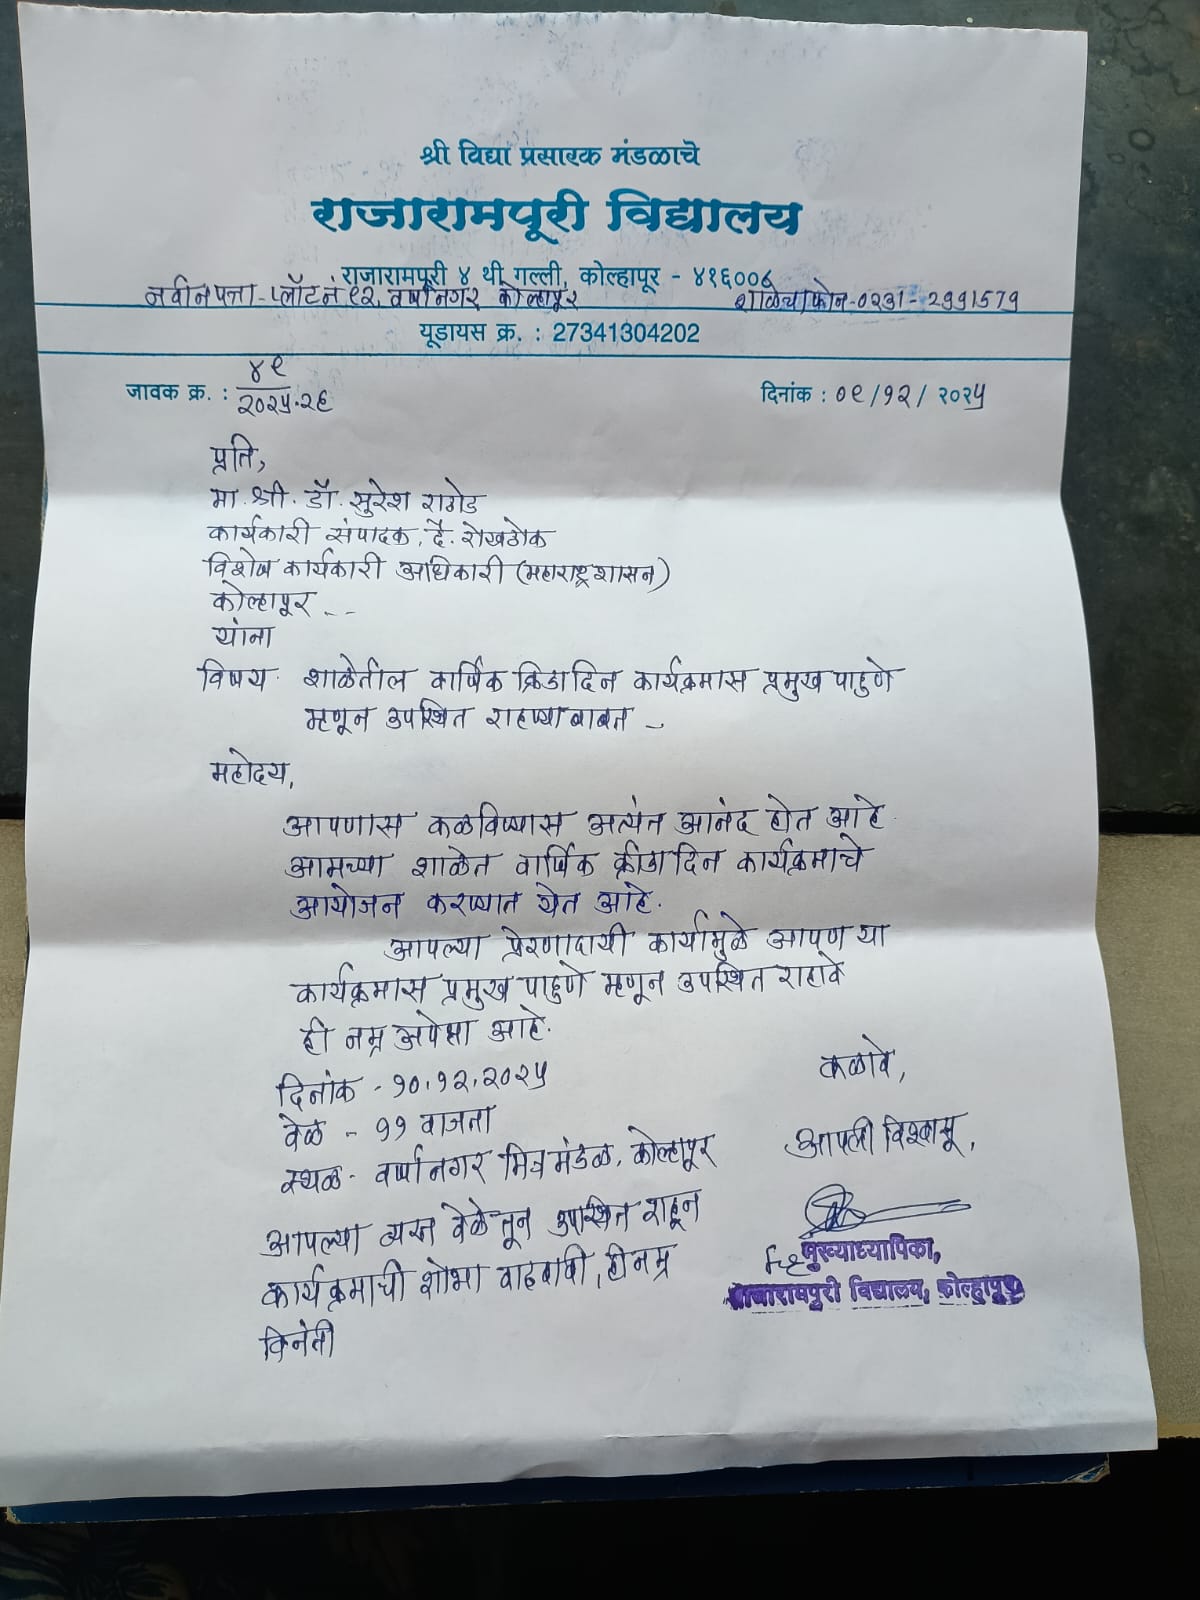 श्री विद्या प्रसारक मंडळाचे
राजारामपूरी विद्यालय
राजारामपूरी ४ थी गल्ली, कोल्हापूर - ४१६००८
नवीन पत्ता - प्लॉट नं १२, वर्षानगर कोल्हापूर शाळेचा फोन - ०२३१ - २९९१५७९
यूडायस क्र. : 27341304202
जावक क्र. : ४९/२०२५-२६ दिनांक : ०९/१२/२०२५
प्रति,
मा. श्री. डॉ. सुरेश राठोड
कार्यकारी संपादक, दै. रोखठोक
विशेष कार्यकारी अधिकारी (महाराष्ट्र शासन)
कोल्हापूर --
यांना
विषय - शाळेतील वार्षिक क्रिडा दिन कार्यक्रमास प्रमुख पाहुणे
म्हणून उपस्थित राहण्याबाबत -
महोदय,
आपणास कळविण्यास अत्यंत आनंद होत आहे
आमच्या शाळेत वार्षिक क्रीडा दिन कार्यक्रमाचे
आयोजन करण्यात येत आहे.
आपल्या प्रेरणादायी कार्यामुळे आपण या
कार्यक्रमास प्रमुख पाहुणे म्हणून उपस्थित राहावे
ही नम्र अपेक्षा आहे.
दिनांक - १०.१२.२०२५
वेळ - ११ वाजता
स्थळ - वर्षानगर मित्र मंडळ, कोल्हापूर
आपल्या व्यस्त वेळेतून उपस्थित राहून
कार्यक्रमाची शोभा वाढवावी, ही नम्र
विनंती
कळावे,
आपली विश्वासू,
मुख्याध्यापिका,
राजारामपुरी विद्यालय, कोल्हापूर